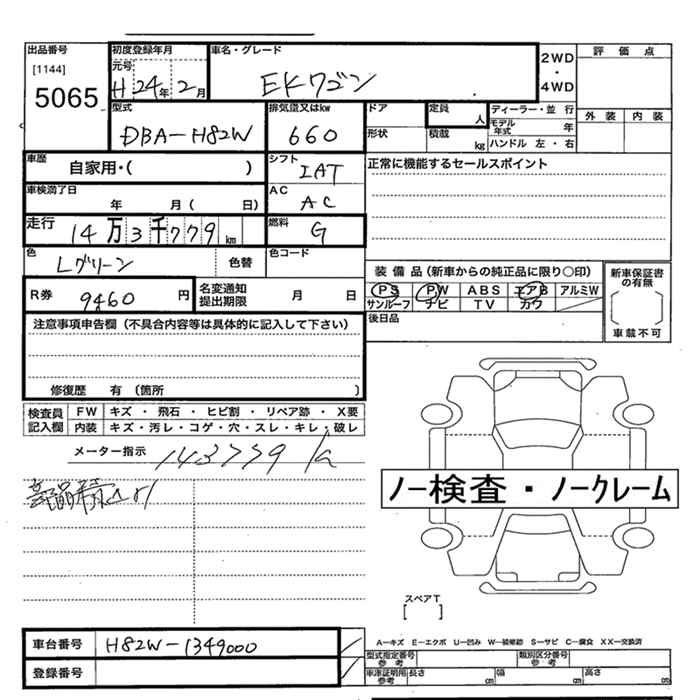 出品番号
[1144]
5065
初度登録年月
元号
H 24年 2月
車名・グレード
EKワゴン
2WD
・
4WD
評価点
外装 内装
型式
DBA-H82W
排気量又はkw
660
ドア
形状
定員
人
積載
kg
ディーラー・並行
モデル年式 年
ハンドル 左・右
車歴
自家用・( )
シフト
IAT
正常に機能するセールスポイント
車検満了日
年 月( 日)
AC
AC
走行
14万3千779km
燃料
G
色
Lグリーン
色替
色コード
装備品(新車からの純正品に限り〇印)
PS PW ABS エアB アルミW
サンルーフ ナビ TV カワ
新車保証書の有無
車載不可
R券
9460円
名変通知提出期限
月 日
後日品
注意事項申告欄(不具合内容等は具体的に記入して下さい)
修復歴 有(箇所 )
検査員記入欄
FW キズ・飛石・ヒビ割・リペア跡・X要
内装 キズ・汚レ・コゲ・穴・スレ・キレ・破レ
メーター指示
143779 k
ノー検査・ノークレーム
スペアT
[ ]
車台番号
H82W-1349000
登録番号
A－キズ E－エクボ U－凹み W－補修跡 S－サビ C－腐食 XX－交換済
型式指定番号
参考
類別区分番号
参考
車庫証明用
参考
長さ cm 幅 cm 高さ cm